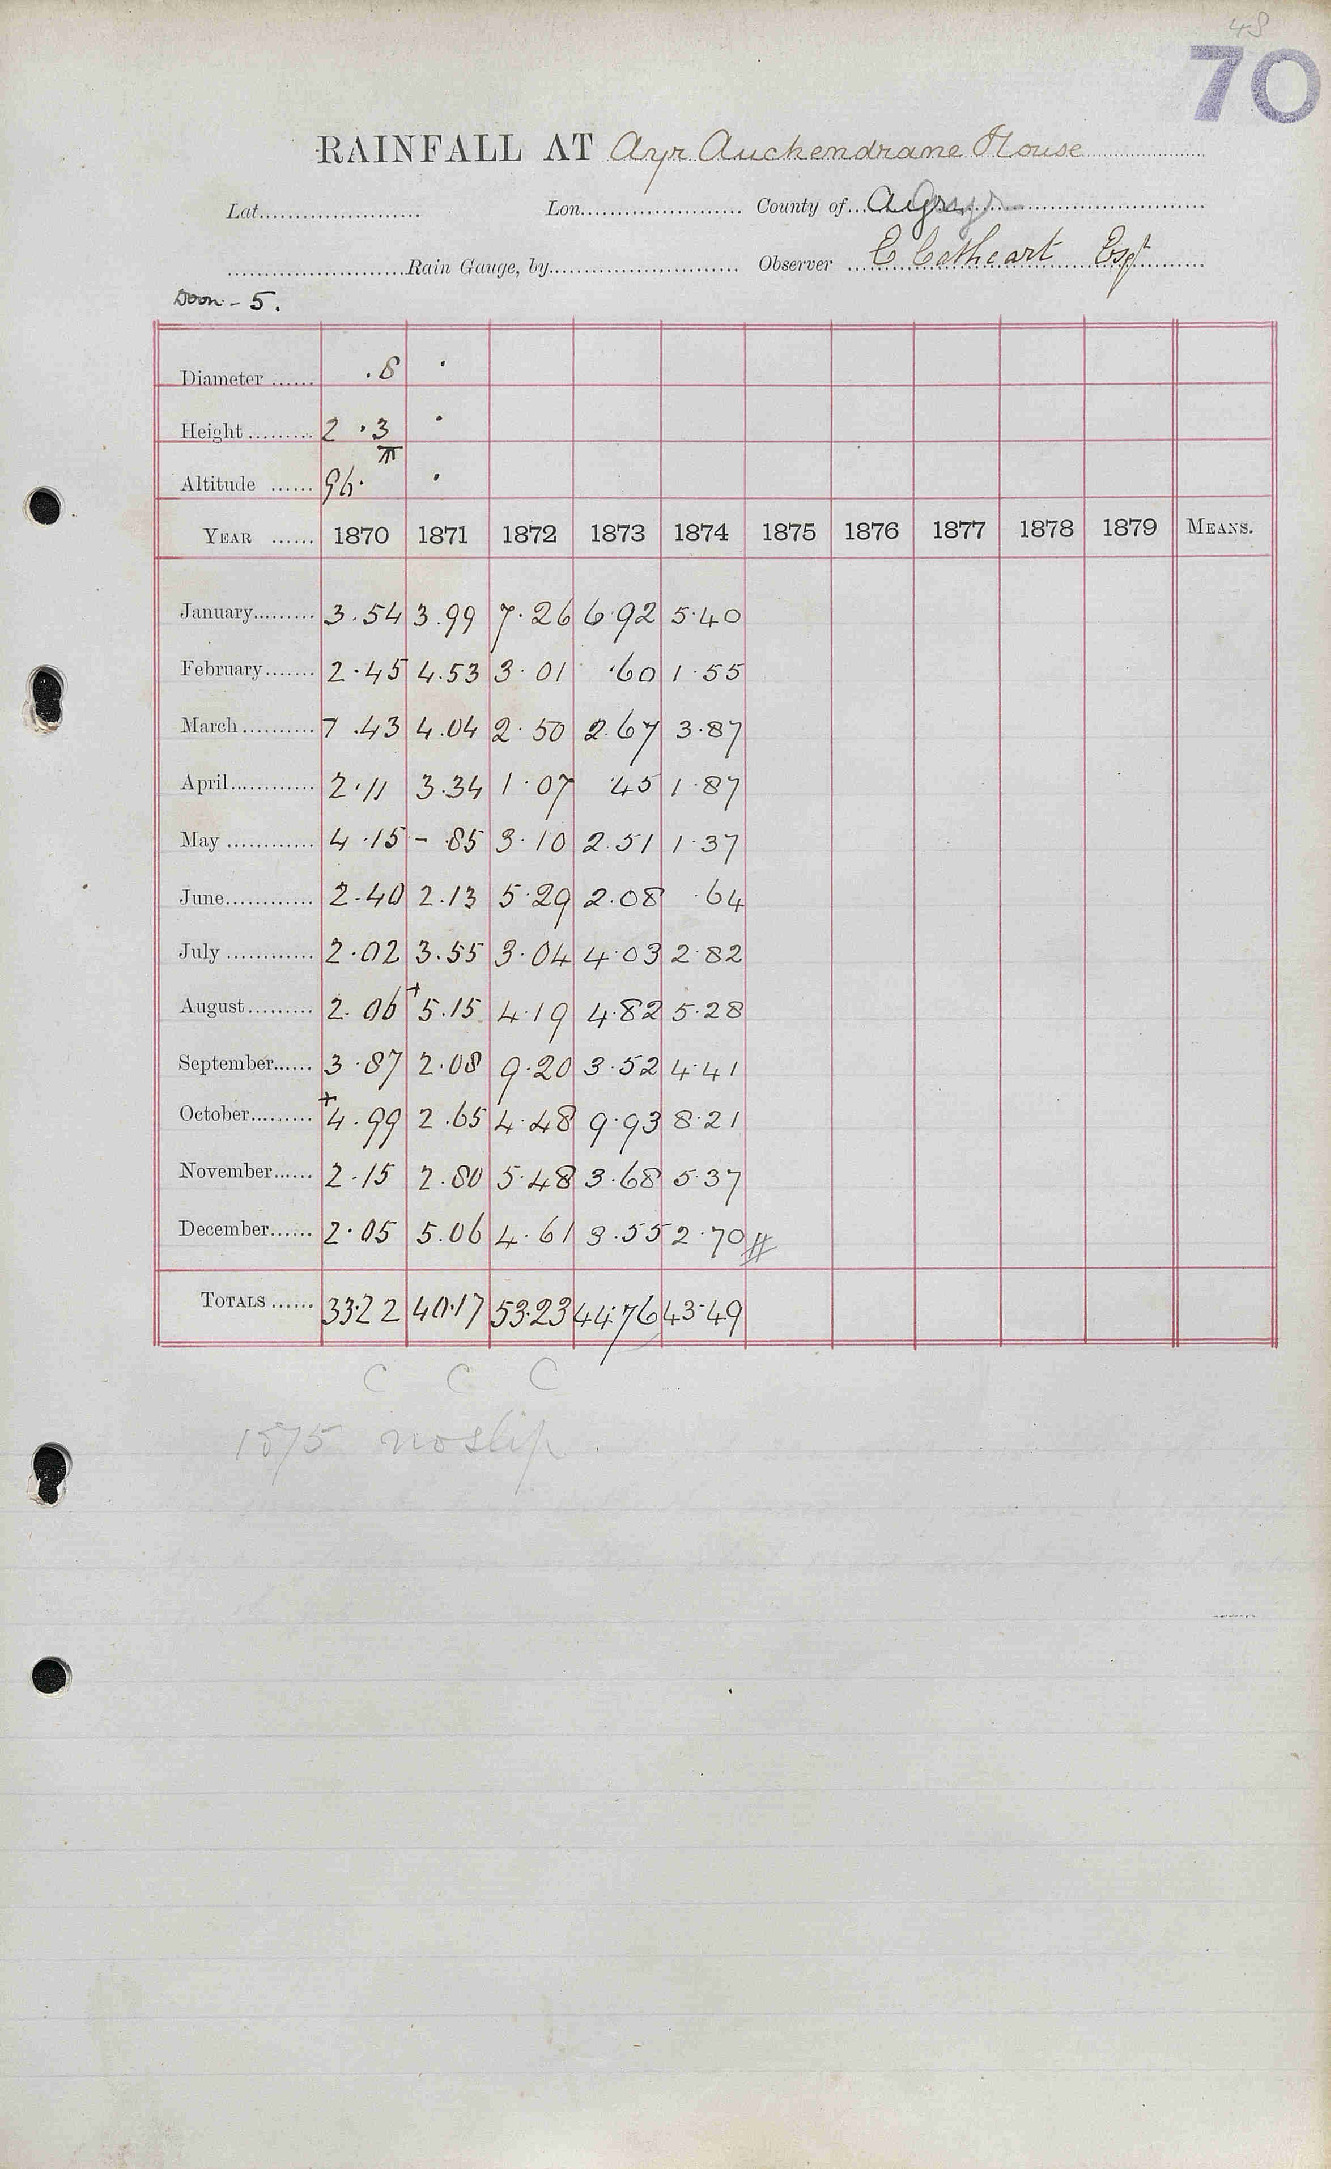 48
70
RAINFALL AT Ayr Auchendrane House
Lat. Lon. County of Ayr
Rain Gauge, by Observer E Cathcart Esqr
Doon - 5.
Diameter ...... .8 .
Height ...... 2 .3 .
Altitude ...... 96. .
YEAR ...... 1870 1871 1872 1873 1874 1875 1876 1877 1878 1879 MEANS.
January 3.54 3.99 7.26 6.92 5.40
February 2.45 4.53 3.01 .60 1.55
March 7.43 4.04 2.50 2.67 3.87
April 2.11 3.34 1.07 .45 1.87
May 4.15 - .85 3.10 2.51 1.37
June 2.40 2.13 5.29 2.08 .64
July 2.02 3.55 3.04 4.03 2.82
August 2.06 +5.15 4.19 4.82 5.28
September 3.87 2.08 9.20 3.52 4.41
October +4.99 2.65 4.48 9.93 8.21
November 2.15 2.80 5.48 3.68 5.37
December 2.05 5.06 4.61 3.55 2.70
TOTALS ...... 33.22 40.17 53.23 44.76 43.49
C C C
1875 no slip